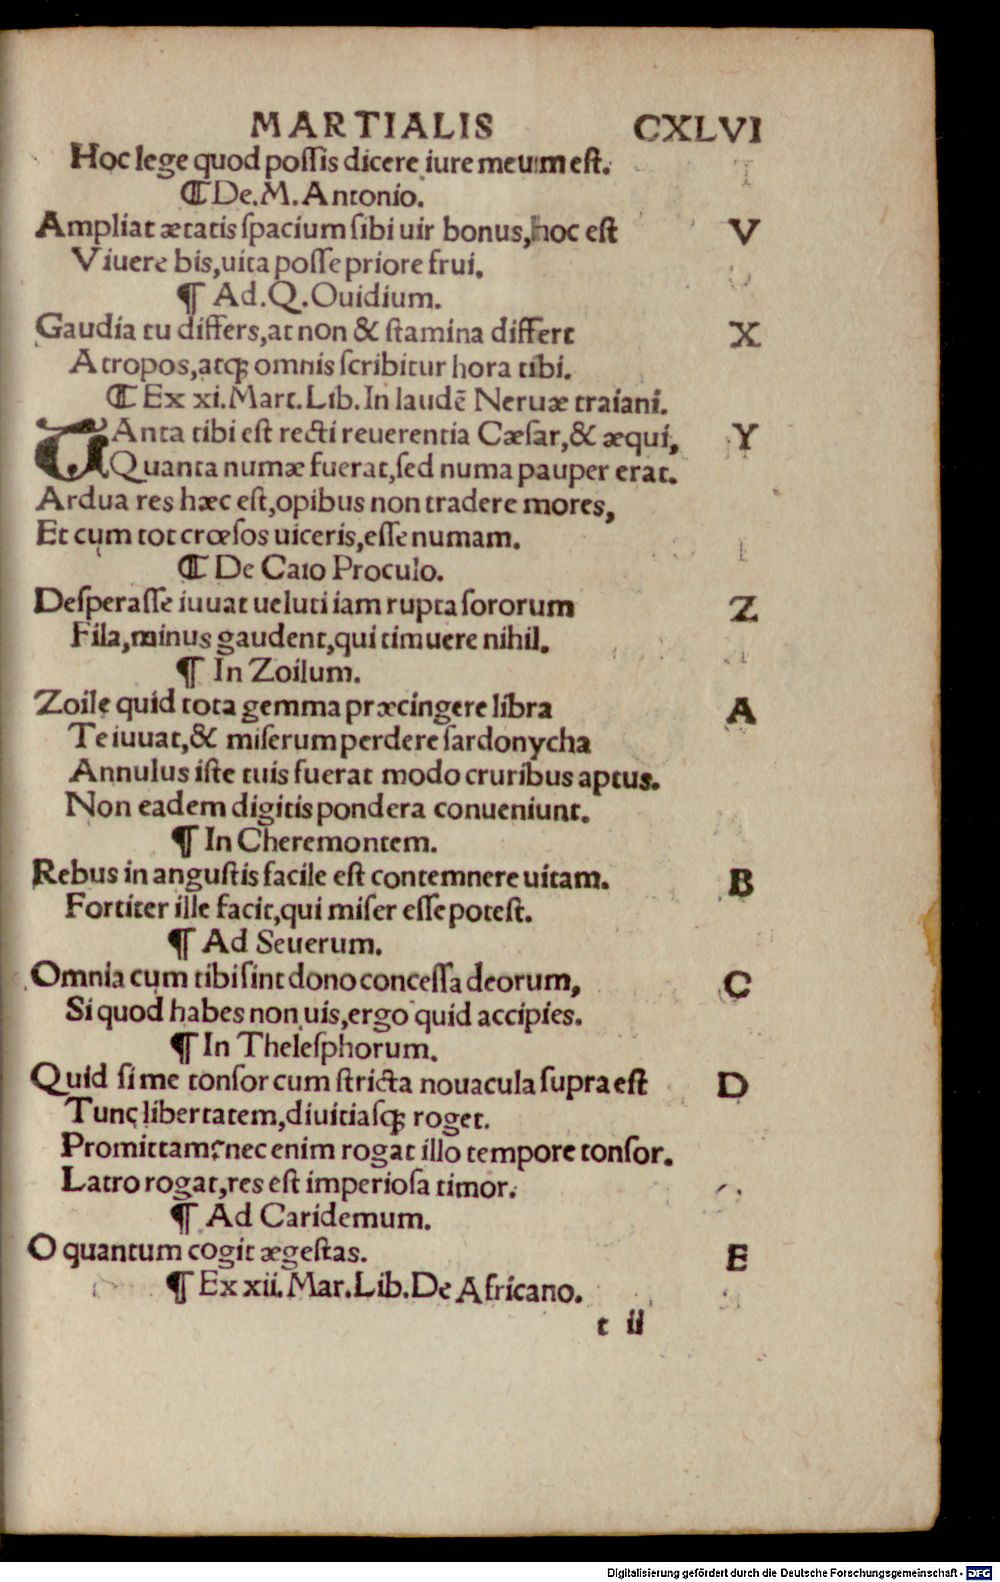 MARTIALIS CXLVI
Hoc lege quod poſſis dicere iure meum eſt.
⸿ De. M. Antonio.
Ampliat ætatis ſpacium ſibi uir bonus, hoc eſt V
Viuere bis, uita poſſe priore frui.
¶ Ad. Q. Ouidium.
Gaudia tu differs, at non & ſtamina differt X
Atropos, atqꝫ omnis ſcribitur hora tibi.
⸿ Ex xi. Mart. Lib. In laudē Neruæ traiani.
TAnta tibi eſt recti reuerentia Cæſar, & æqui, Y
Quanta numæ fuerat, ſed numa pauper erat.
Ardua res hæc eſt, opibus non tradere mores,
Et cum tot crœſos uiceris, eſſe numam.
⸿ De Caio Proculo.
Deſperaſſe iuuat ueluti iam rupta ſororum Z
Fila, minus gaudent, qui timuere nihil.
¶ In Zoilum.
Zoile quid tota gemma præcingere libra A
Te iuuat, & miſerum perdere ſardonycha
Annulus iſte tuis fuerat modo cruribus aptus.
Non eadem digitis pondera conueniunt.
¶ In Cheremontem.
Rebus in anguſtis facile eſt contemnere uitam. B
Fortiter ille facit, qui miſer eſſe poteſt.
¶ Ad Seuerum.
Omnia cum tibi ſint dono conceſſa deorum, C
Si quod habes non uis, ergo quid accipies.
¶ In Theleſphorum.
Quid ſi me tonſor cum ſtricta nouacula ſupra eſt D
Tunc libertatem, diuitiaſqꝫ roget.
Promittam? nec enim rogat illo tempore tonſor.
Latro rogat, res eſt imperioſa timor.
¶ Ad Caridemum.
O quantum cogit ægeſtas. E
¶ Ex xii. Mar. Lib. De Africano.
t ii
Digitalisierung gefördert durch die Deutsche Forschungsgemeinschaft - DFG